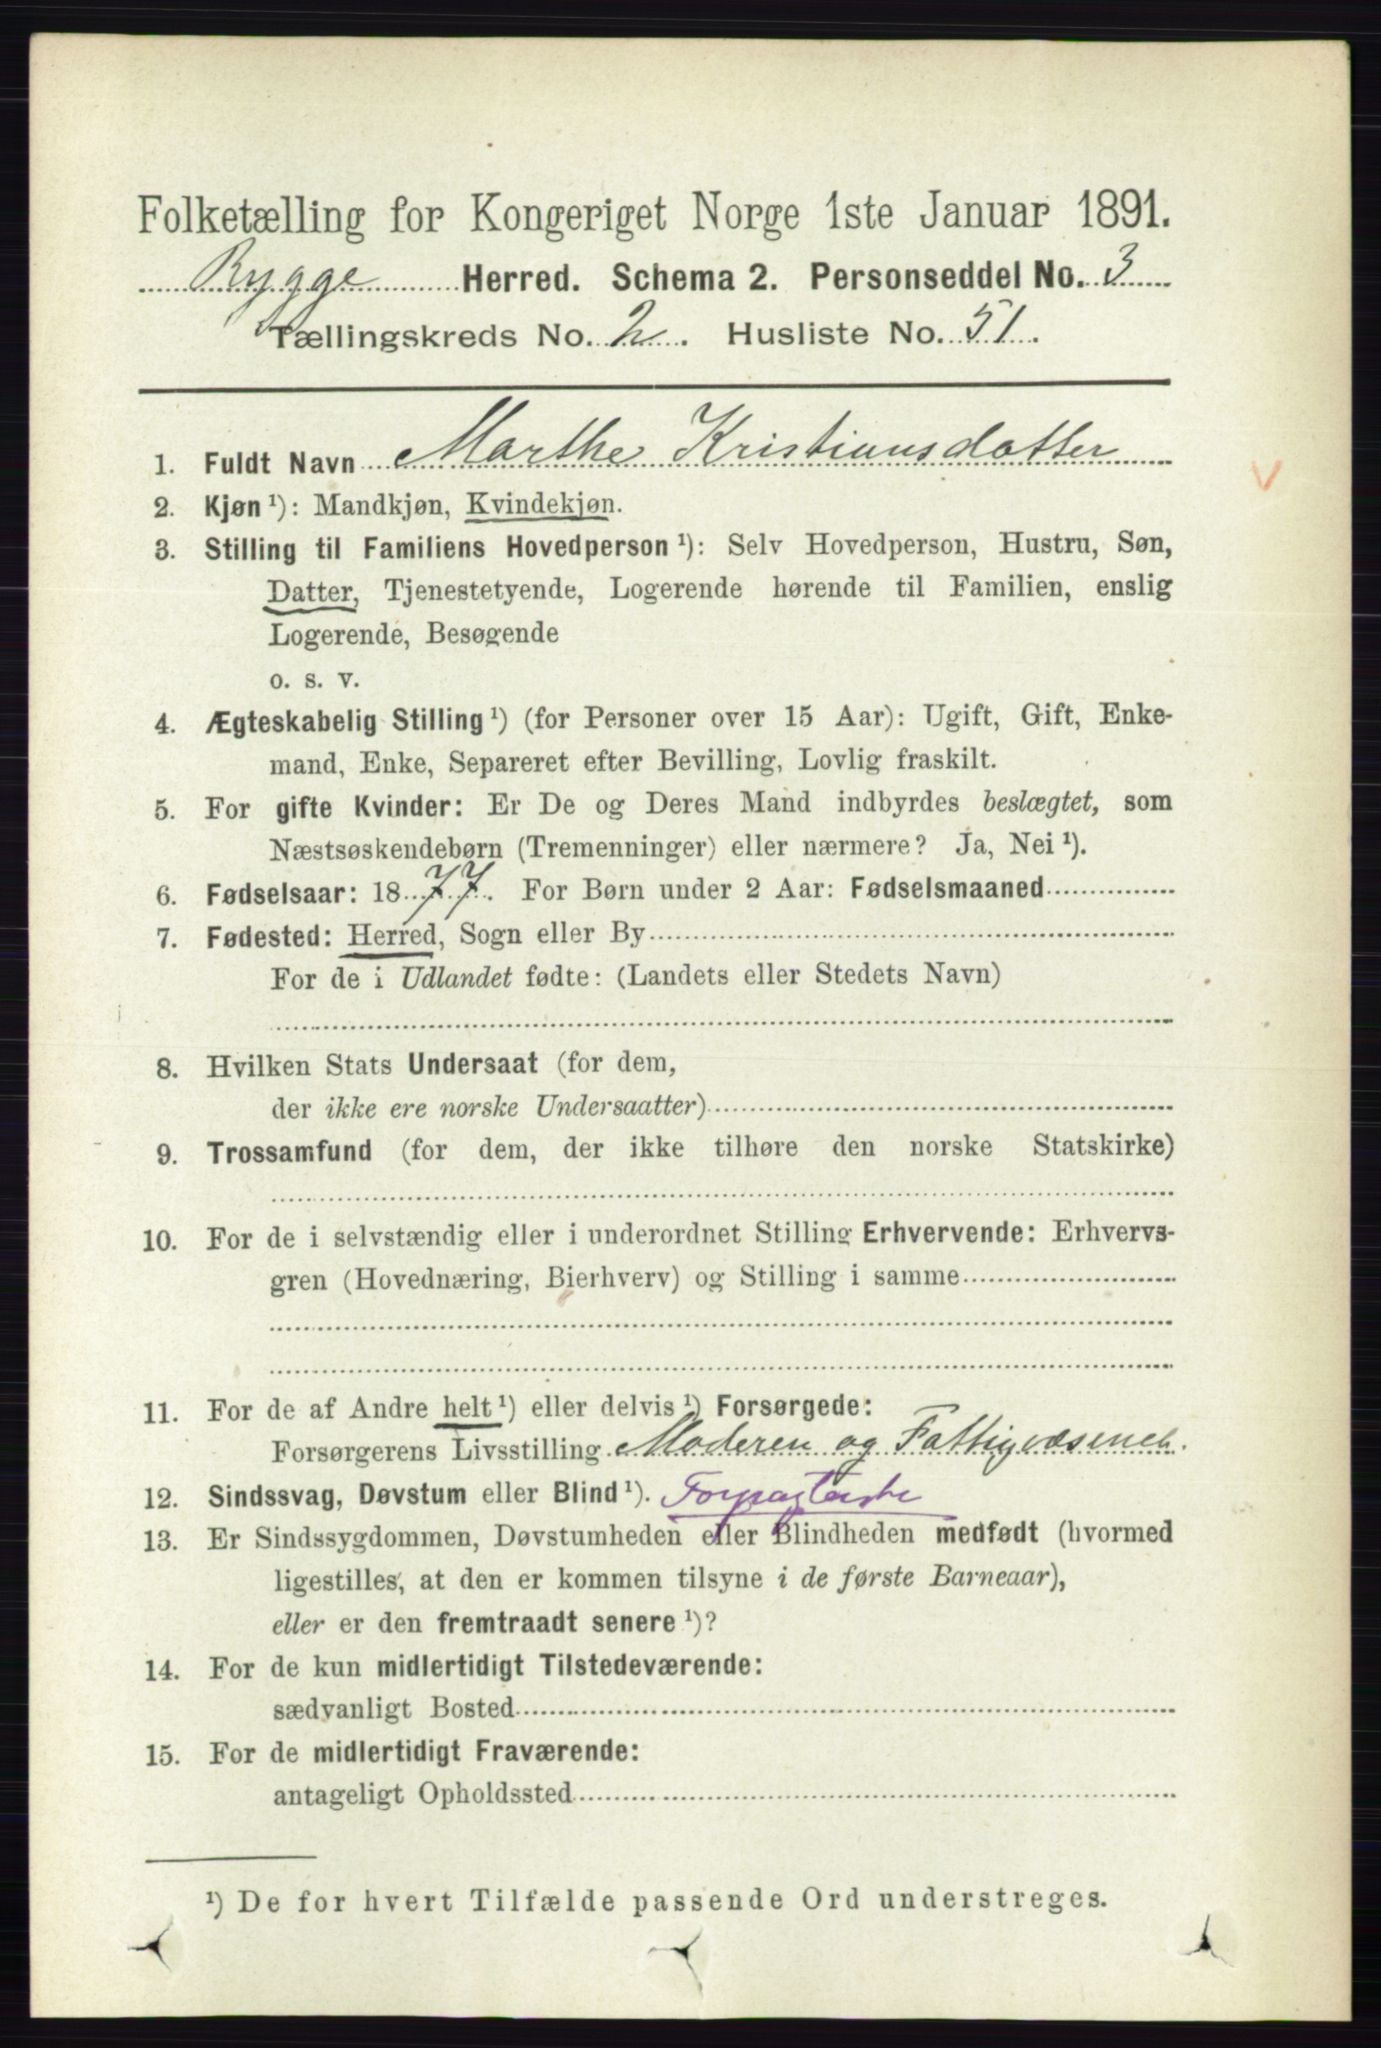 Folketælling for Kongeriget Norge 1ste Januar 1891.
Rygge Herred. Schema 2. Personseddel No. 3
Tællingskreds No. 2. Husliste No. 51.
1. Fuldt Navn Marthe Kristiansdatter
2. Kjøn ¹): Mandkjøn, Kvindekjøn.
3. Stilling til Familiens Hovedperson ¹): Selv Hovedperson, Hustru, Søn,
Datter, Tjenestetyende, Logerende hørende til Familien, enslig
Logerende, Besøgende
o. s. v.
4. Ægteskabelig Stilling ¹) (for Personer over 15 Aar): Ugift, Gift, Enke-
mand, Enke, Separeret efter Bevilling, Lovlig fraskilt.
5. For gifte Kvinder: Er De og Deres Mand indbyrdes beslægtet, som
Næstsøskendebørn (Tremenninger) eller nærmere? Ja, Nei ¹).
6. Fødselsaar: 1877. For Børn under 2 Aar: Fødselsmaaned
7. Fødested: Herred, Sogn eller By
For de i Udlandet fødte: (Landets eller Stedets Navn)
8. Hvilken Stats Undersaat (for dem,
der ikke ere norske Undersaatter)
9. Trossamfund (for dem, der ikke tilhøre den norske Statskirke)
10. For de i selvstændig eller i underordnet Stilling Erhvervende: Erhvervs-
gren (Hovednæring, Bierhverv) og Stilling i samme
11. For de af Andre helt ¹) eller delvis ¹) Forsørgede:
Forsørgerens Livsstilling Moderen og Fattigvæsenet.
12. Sindssvag, Døvstum eller Blind ¹).
13. Er Sindssygdommen, Døvstumheden eller Blindheden medfødt (hvormed
ligestilles, at den er kommen tilsyne i de første Barneaar),
eller er den fremtraadt senere ¹)?
14. For de kun midlertidigt Tilstedeværende:
sædvanligt Bosted
15. For de midlertidigt Fraværende:
antageligt Opholdssted
¹) De for hvert Tilfælde passende Ord understreges.